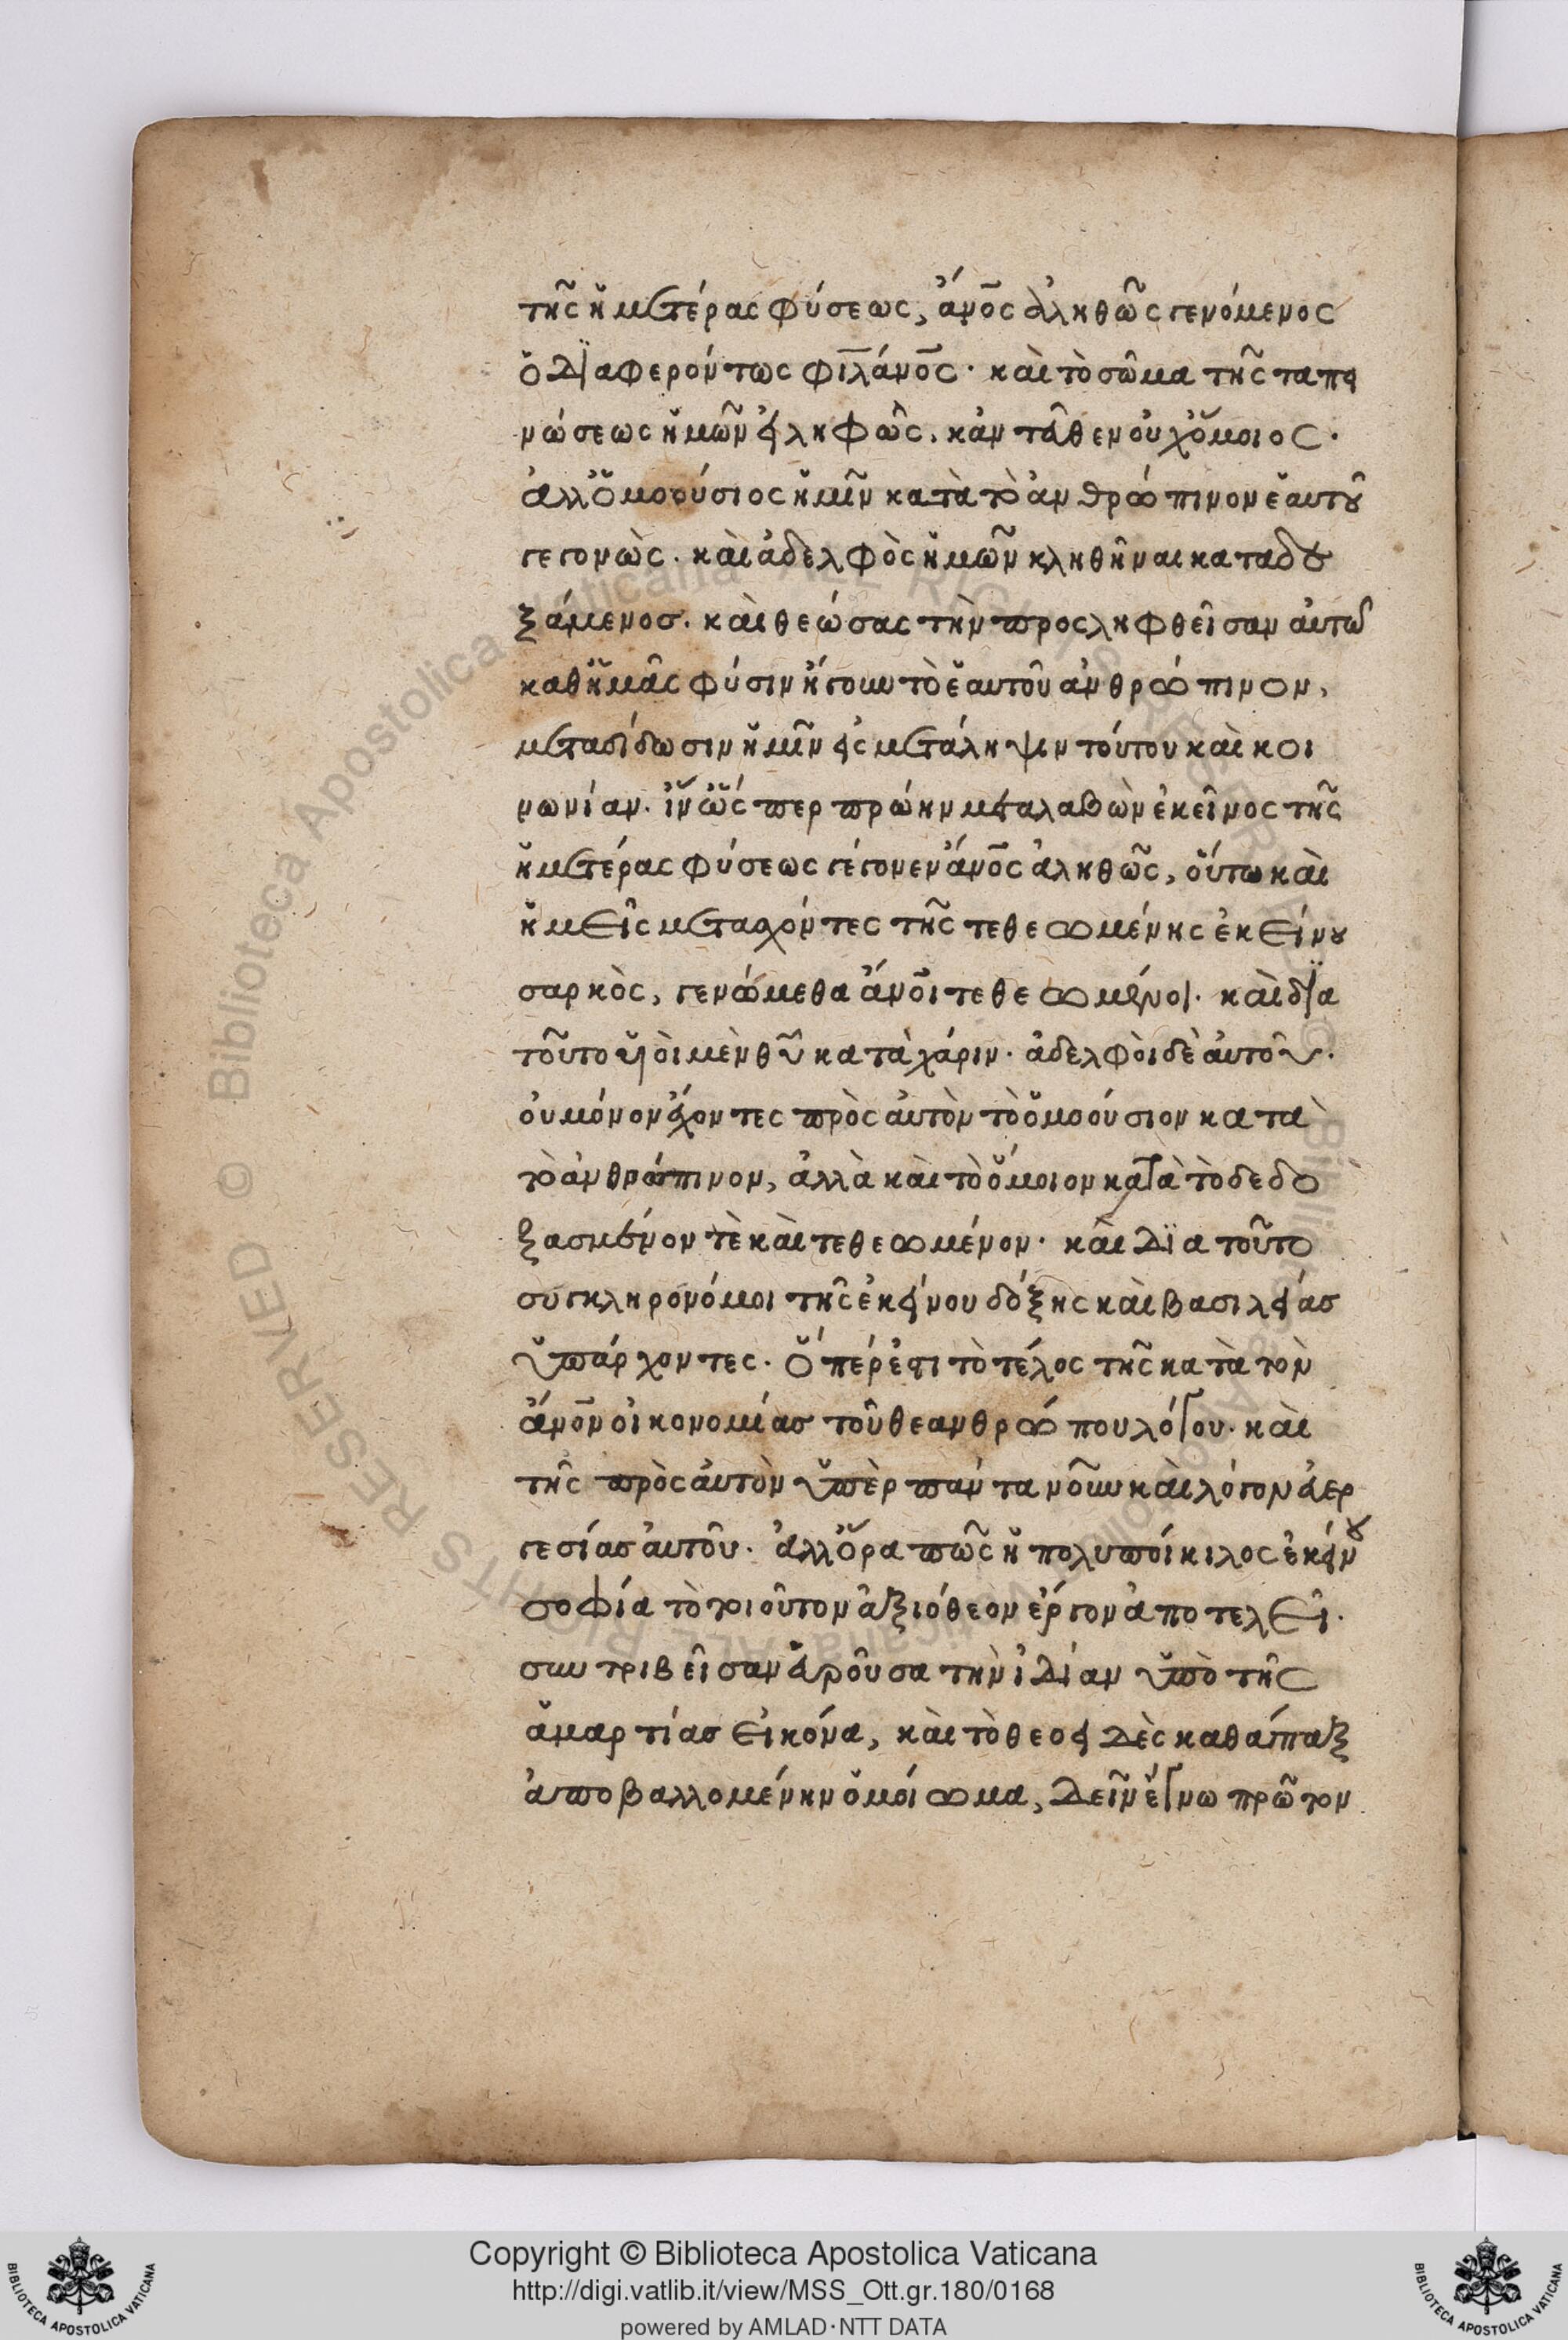 τῆς ἡμετέρας φύσεως, ἄνο̅ς ἀληθῶς γενόμενος
ὁ διαφερόντως φιλάνο̅ς· καὶ τὸ σῶμα τῆς ταπει
νώσεως ἡμῶν εἰληφὼς. κἀνταῦθεν οὐχ ὅμοιος·
ἀλλ' ὁμοούσιος ἡμῖν κατὰ τὸ ἀνθρώπινον ἑαυτοῦ
γεγονὼς. καὶ ἀδελφὸς ἡμῶν κληθῆναι καταδε
ξάμενος. καὶ θεώσας τὴν προσληφθεῖσαν αὐτῶ
καθ' ἡμᾶς φύσιν ἤγουν τὸ ἑαυτοῦ ἀνθρώπινον,
μεταδίδωσιν ἡμῖν εἰς μετάληψιν τούτου καὶ κοι
νωνίαν. ἵν' ὥσπερ πρώην μεταλαβὼν ἐκεῖνος τῆς
ἡμετέρας φύσεως γέγονεν ἄνο̅ς ἀληθῶς, οὕτω καὶ
ἡμεῖς μετασχόντες τῆς τεθεωμένης ἐκείνου
σαρκὸς, γενώμεθα ἄνο̅ι τεθεωμένοι. καὶ δϊα
τοῦτο υἱοὶ μὲν θυ̅ κατὰ χάριν. ἀδελφοὶ δὲ αὐτοῦ.
οὐ μόνον ἔχοντες πρὸς αὐτὸν τὸ ὁμοούσιον κατὰ
τὸ ἀνθρώπινον, ἀλλὰ καὶ τὸ ὅμοιον κατὰ τὸ δεδο
ξασμένον τὲ καὶ τεθεωμένον. καὶ δϊα τοῦτο
συγκληρονόμοι τῆς ἐκείνου δόξης καὶ βασιλείας
ὑπάρχοντες. ὅπέρ ἐστι τὸ τέλος τῆς κατὰ τὸν
ἄνο̅ν οἰκονομίας τοῦ θεανθρώπου λόγου. καὶ
τῆς πρὸς αὐτὸν ὑπὲρ πάντα νοῦν καὶ λόγον εὐερ
γεσίας αὐτοῦ. ἀλλ' ὅρα πῶς ἡ πολυποίκιλος ἐκείνου
σοφία τὸ τοιοῦτον ἀξιόθεον ἔργον ἀποτελεῖ.
συντριβεῖσαν εὑροῦσα τὴν ἰδίαν ὑπὸ τῆς
ἁμαρτίας εἰκόνα, καὶ τὸ θεοειδὲς καθάπαξ
ἀποβαλλομένην ὁμοίωμα, δεῖν ἔγνω πρῶτον
Copyright © Biblioteca Apostolica Vaticana
http://digi.vatlib.it/view/MSS_Ott.gr.180/0168
powered by AMLAD·NTT DATA
BIBLIOTECA APOSTOLICA VATICANA
BIBLIOTECA APOSTOLICA VATICANA